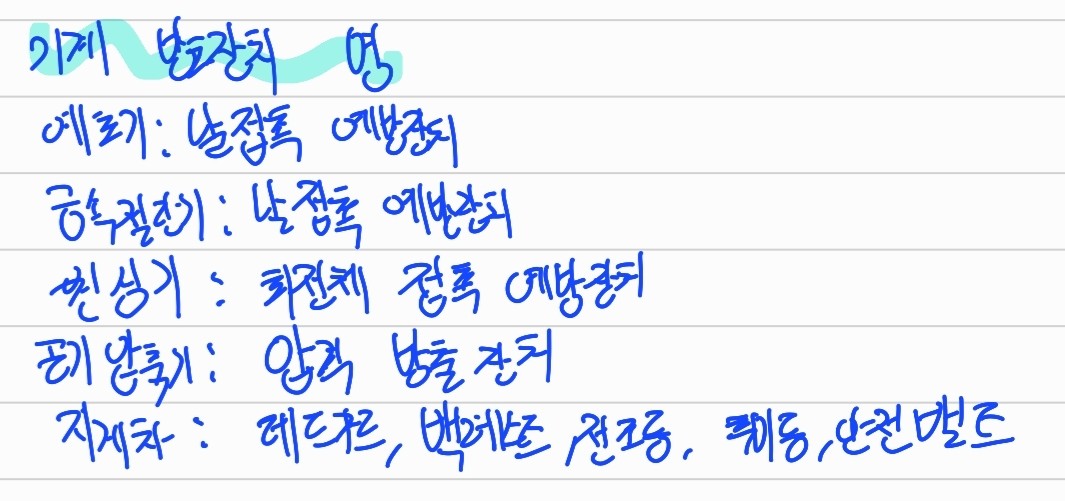 기계 방호장치 명
예초기: 날접촉 예방장치
금속절단기: 날접촉 예방장치
원심기: 회전체 접촉 예방장치
공기압축기: 압력 방출장치
지게차: 헤드가드, 백레스트, 전조등, 후미등, 안전벨트